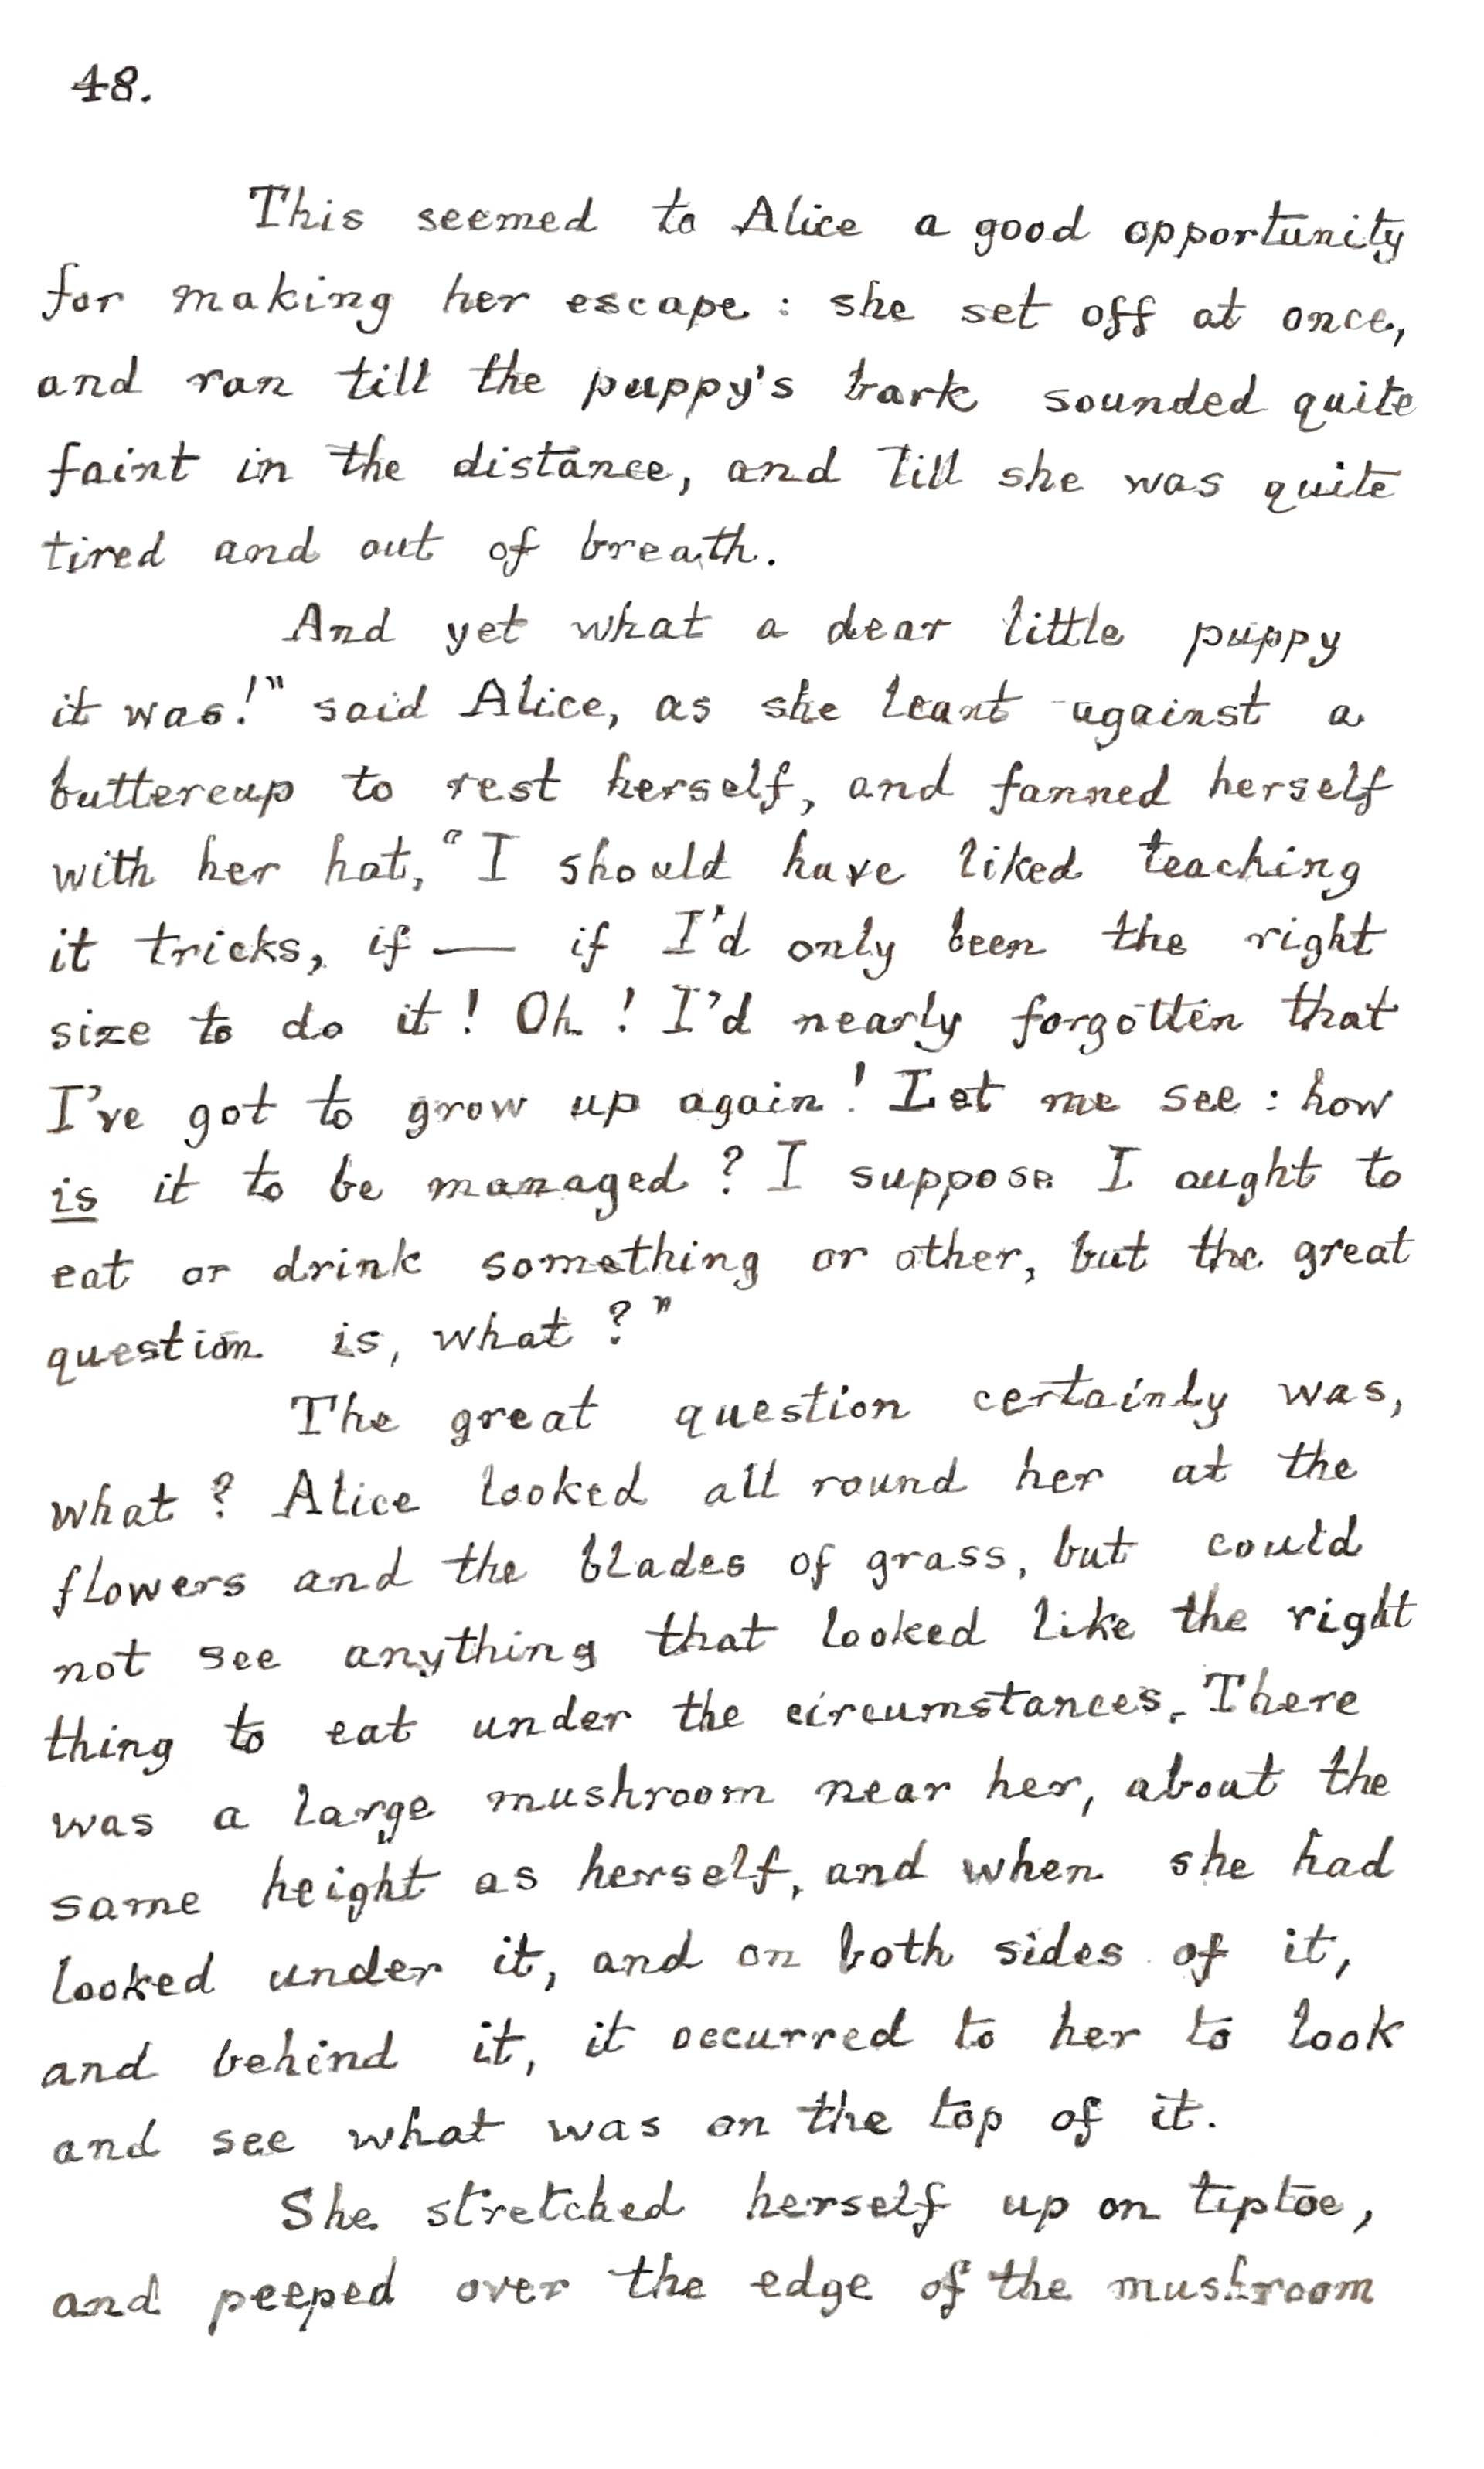 48.
This seemed to Alice a good opportunity
for making her escape : she set off at once,
and ran till the puppy's bark sounded quite
faint in the distance, and till she was quite
tired and out of breath.
And yet what a dear little puppy
it was!" said Alice, as she leant against a
buttercup to rest herself, and fanned herself
with her hat, "I should have liked teaching
it tricks, if — if I'd only been the right
size to do it! Oh! I'd nearly forgotten that
I've got to grow up again! Let me see: how
is it to be managed? I suppose I ought to
eat or drink something or other, but the great
question is, what?"
The great question certainly was,
what? Alice looked all round her at the
flowers and the blades of grass, but could
not see anything that looked like the right
thing to eat under the circumstances. There
was a large mushroom near her, about the
same height as herself, and when she had
looked under it, and on both sides of it,
and behind it, it occurred to her to look
and see what was on the top of it.
She stretched herself up on tiptoe,
and peeped over the edge of the mushroom